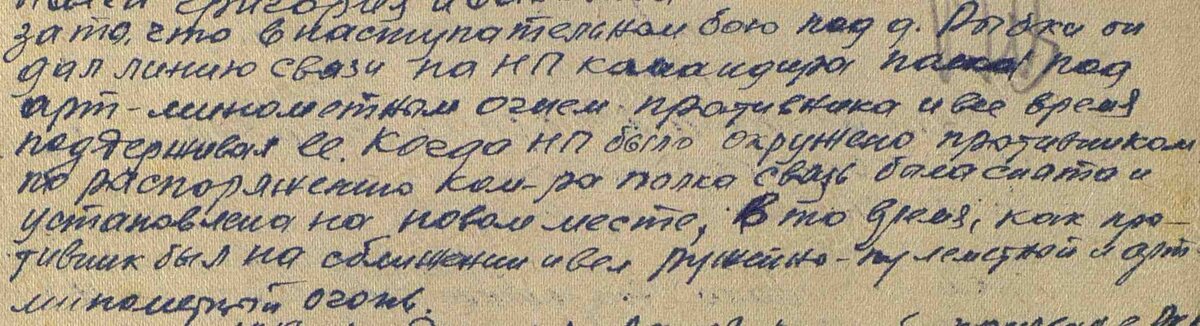 за то, что в наступательном бою под д. Рыбки он
дал линию связи на НП командира полка под
арт-минометным огнем противника и все время
поддерживал ее. Когда НП было окружено противником
по распоряжению ком-ра полка связь была снята и
установлена на новом месте, в то время, как про-
тивник был на сближении и вел ружейно-пулеметный и арт
минометный огонь.